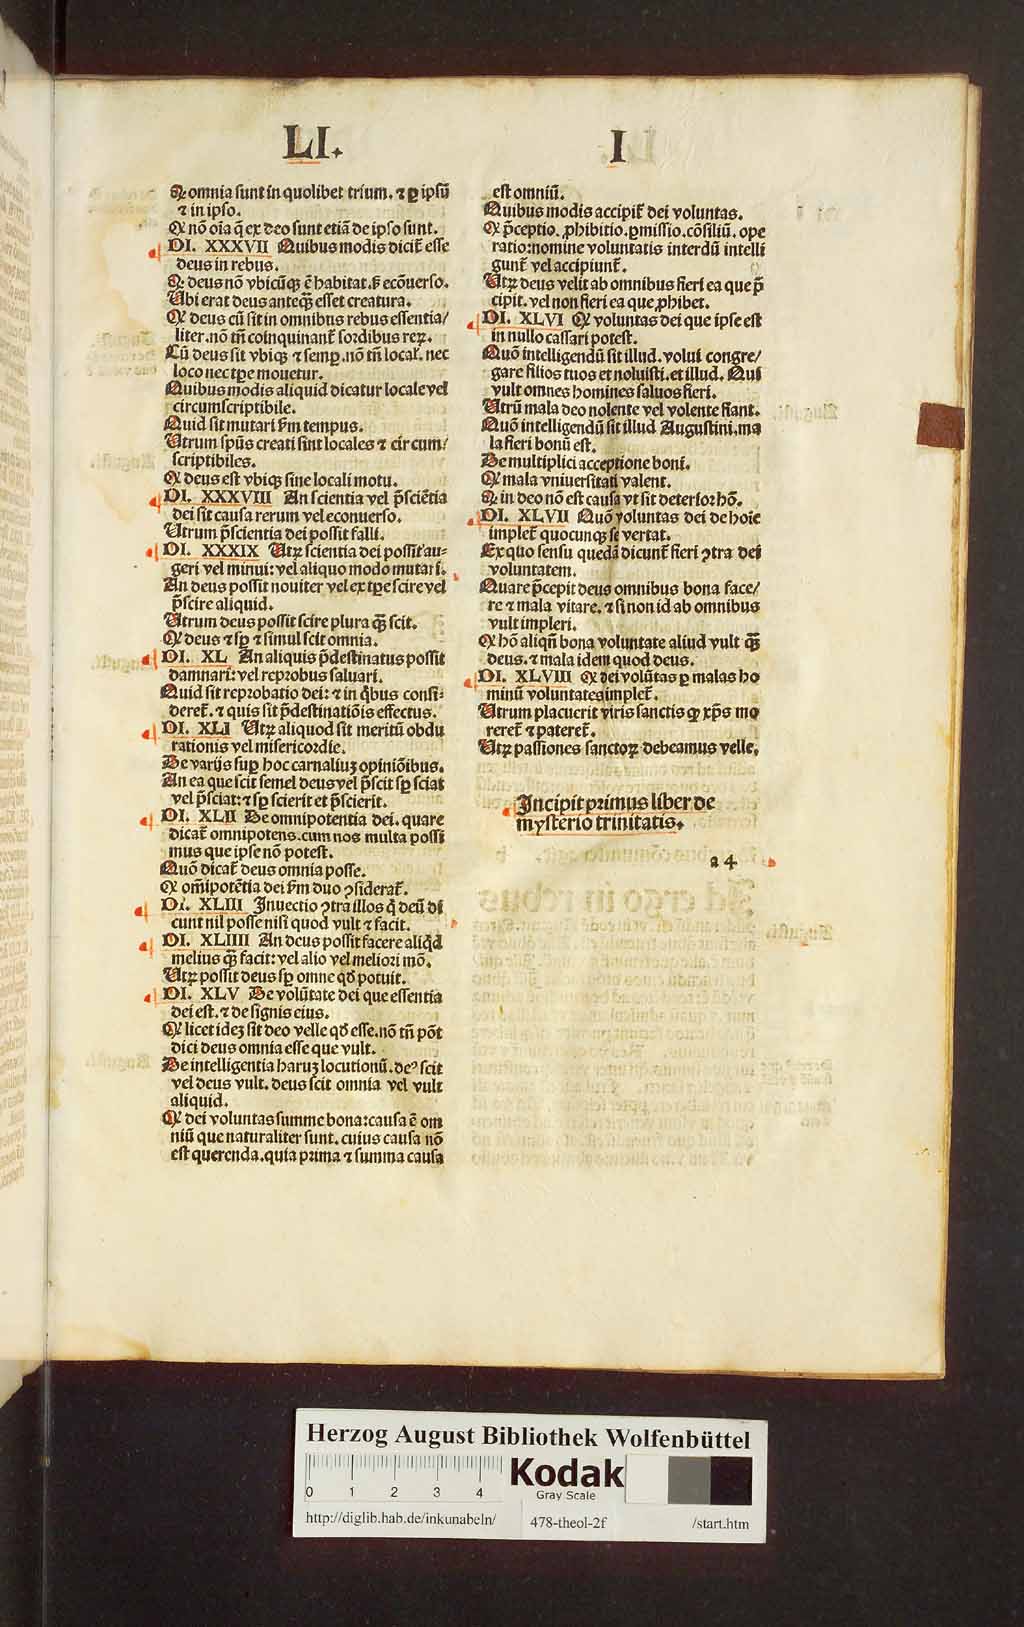 LI. I
Q̃ omnia sunt in quolibet trium. ⁊ ꝑ ipsũ
⁊ in ipso.
Q nõ oĩa q̃ ex deo sunt etiã de ipso sunt.
DI. XXXVII Quibus modis dicit̃ esse
deus in rebus.
Q̃ deus nõ vbicũqꝫ ẽ habitat. ß ecõuerso.
Ubi erat deus anteqꝫ̃ esset creatura.
Q deus cũ sit in omnibus rebus essentia/
liter. nõ tñ coinquinant̃ sordibus reꝝ.
Cũ deus sit vbiqꝫ ⁊ semꝑ. nõ tñ local̃. nec
loco nec tꝑe mouetur.
Quibus modis aliquid dicatur locale vel
circumscriptibile.
Quid sit mutari ẜm tempus.
Utrum spũs creati sint locales ⁊ cir cum/
scriptibiles.
Q deus est vbiqꝫ sine locali motu.
DI. XXXVIII An scientia vel p̃sciẽtia
dei sit causa rerum vel econuerso.
Utrum p̃scientia dei possit falli.
DI. XXXIX Utꝝ scientia dei possit au-
geri vel minui: vel aliquo modo mutari.
An deus possit nouiter vel ex tꝑe scire vel
p̃scire aliquid.
Utrum deus possit scire plura qꝫ̃ scit.
Q deus ⁊ sꝑ ⁊ simul scit omnia.
DI. XL An aliquis p̃destinatus possit
damnari: vel reprobus saluari.
Quid sit reprobatio dei: ⁊ in q̇bus consi-
deret̃. ⁊ quis sit p̃destinatiõis effectus.
DI. XLI Utꝝ aliquod sit meritũ obdu
rationis vel misericordie.
De varijs suꝑ hoc carnaliuꝫ opiniõibus.
An ea que scit semel deus vel p̃scit sꝑ sciat
vel p̃sciat: ⁊ sꝑ scierit et p̃scierit.
DI. XLII De omnipotentia dei. quare
dicat̃ omnipotens. cum nos multa possi
mus que ipse nõ potest.
Quõ dicat̃ deus omnia posse.
Q om̃ipotẽtia dei ẜm duo ꝯsiderat̃.
DI. XLIII Inuectio ꝯtra illos q̇ deũ di
cunt nil posse nisi quod vult ⁊ facit.
DI. XLIIII An deus possit facere aliq̇d
melius qꝫ̃ facit: vel alio vel meliori mõ.
Utꝝ possit deus sꝑ omne qđ potuit.
DI. XLV De volũtate dei que essentia
dei est. ⁊ de signis eius.
Q licet ideꝫ sit deo velle qđ esse. nõ tñ põt
dici deus omnia esse que vult.
De intelligentia haruꝫ locutionũ. de⁹ scit
vel deus vult. deus scit omnia vel vult
aliquid.
Q dei voluntas summe bona: causa ẽ om
niũ que naturaliter sunt. cuius causa nõ
est querenda. quia prima ⁊ summa causa
est omniũ.
Quibus modis accipit̃ dei voluntas.
Q p̃ceptio. ꝓhibitio. ꝑmissio. cõsiliũ. ope
ratio: nomine voluntatis interdũ intelli
gunt̃ vel accipiunt̃.
Utꝝ deus velit ab omnibus fieri ea que p̃
cipit. vel non fieri ea que ꝓhibet.
DI. XLVI Q voluntas dei que ipse est
in nullo cassari potest.
Quõ intelligendũ sit illud. volui congre/
gare filios tuos et noluisti. et illud. Qui
vult omnes homines saluos fieri.
Utrũ mala deo nolente vel volente fiant.
Quõ intelligendũ sit illud Augustini. ma
la fieri bonũ est.
De multiplici acceptione boni.
Q mala vniuersitati valent.
Q̃ in deo nõ est causa vt sit deterior hõ.
DI. XLVII Quõ voluntas dei de hoĩe
implet̃ quocunqꝫ se vertat.
Ex quo sensu quedã dicunt̃ fieri ꝯtra dei
voluntatem.
Quare p̃cepit deus omnibus bona face/
re ⁊ mala vitare. ⁊ si non id ab omnibus
vult impleri.
Q hõ aliqñ bona voluntate aliud vult qꝫ̃
deus. ⁊ mala idem quod deus.
DI. XLVIII Q dei volũtas ꝑ malas ho
minũ voluntates implet̃.
Utrum placuerit viris sanctis ꝙ xp̃s mo
reret̃ ⁊ pateret̃.
Utꝝ passiones sanctoꝝ debeamus velle.
Incipit primus liber de
mysterio trinitatis.
a 4
Herzog August Bibliothek Wolfenbüttel
0 1 2 3 4
Kodak
Gray Scale
http://diglib.hab.de/inkunabeln/ 478-theol-2f /start.htm